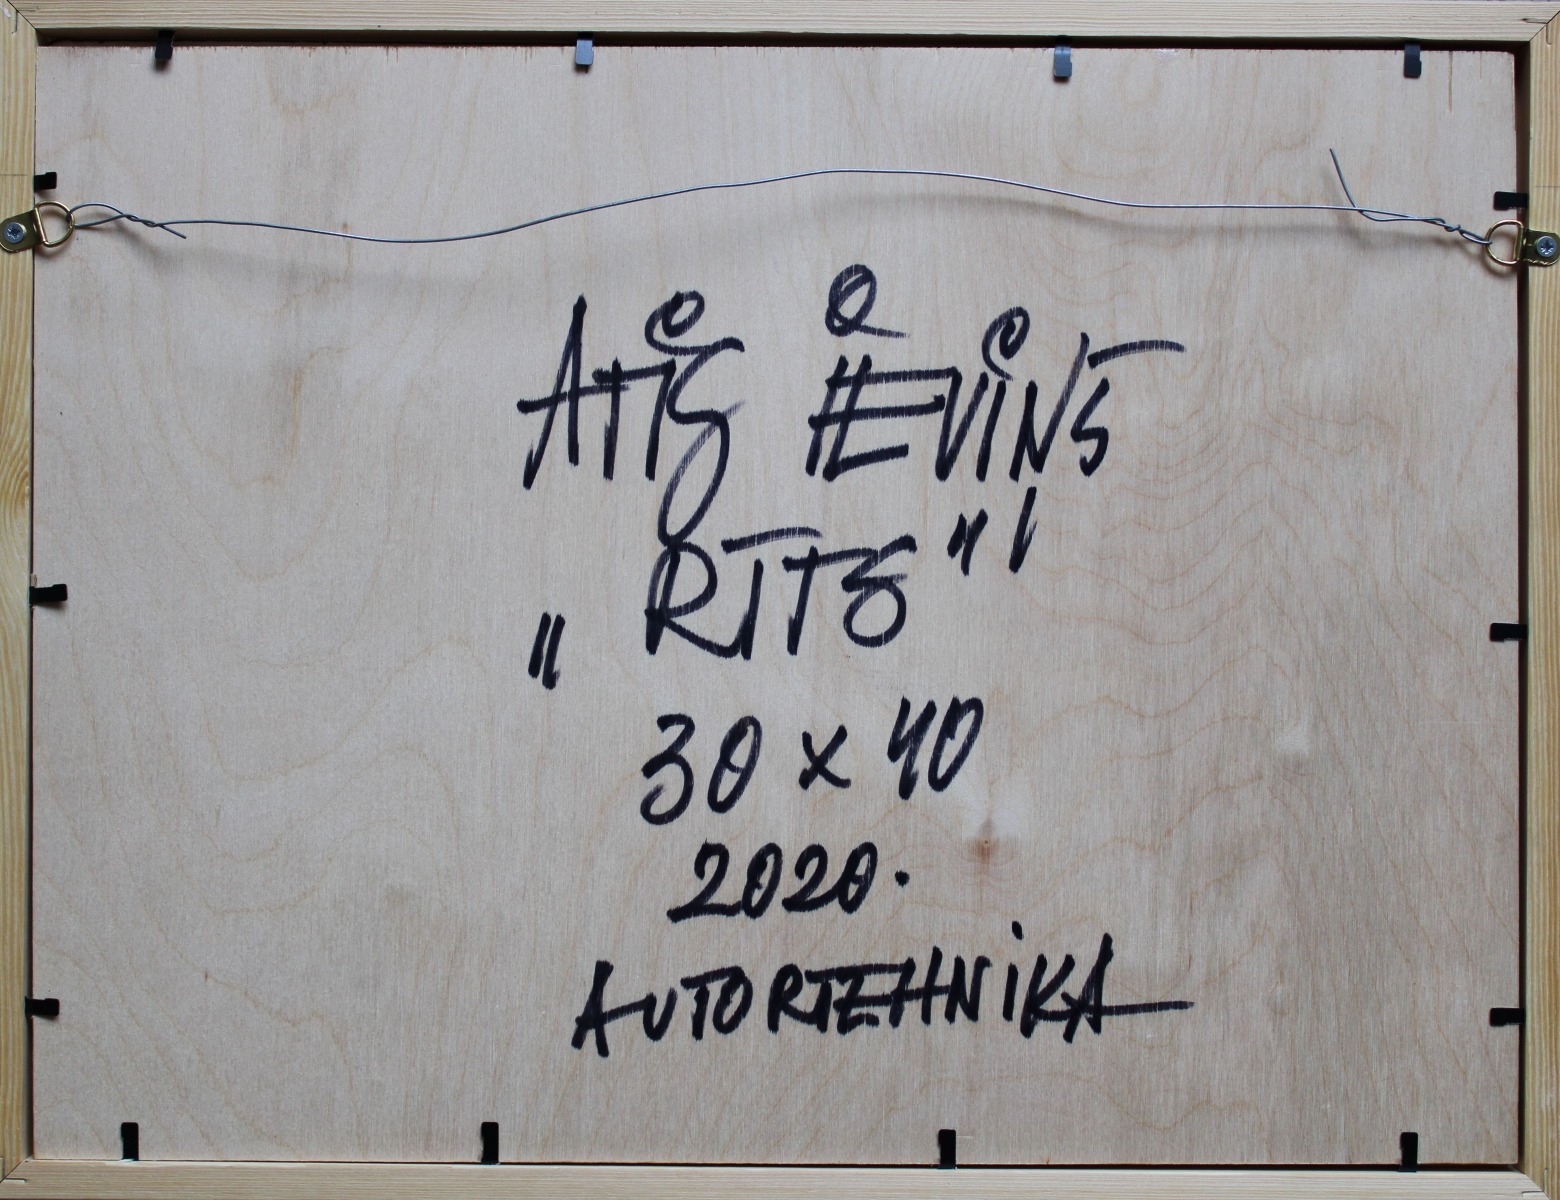 ATIS IEVIŅŠ
„RĪTS"
30 x 40
2020.
AUTORTEHNIKA